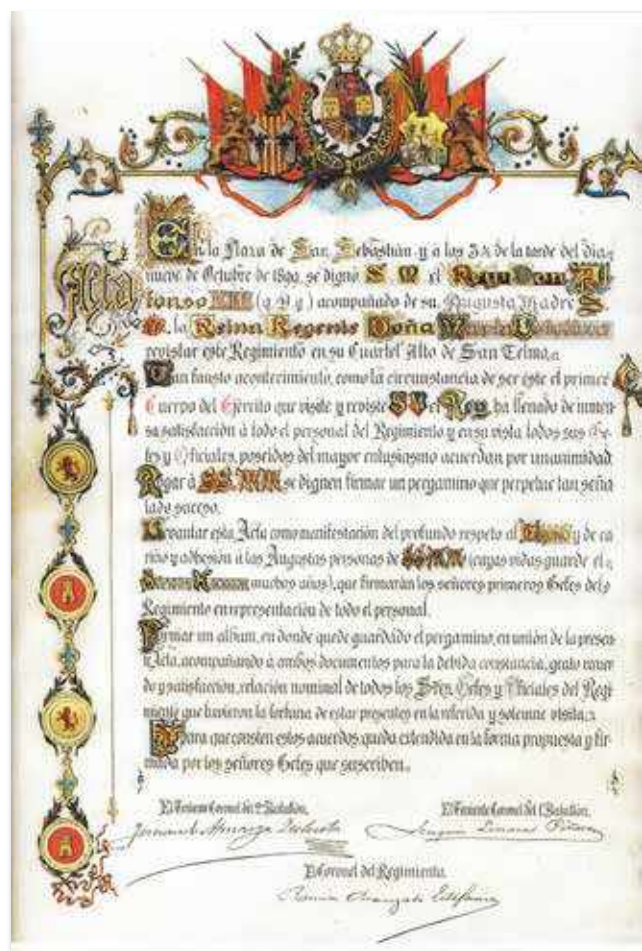 Acta
En la Plaza de San Sebastián y a las 3¾ de la tarde del dia
nueve de Octubre de 1890, se dignó S. M. el Rey Don Al
fonso XIII (q. D. g.) acompañado de su Augusta Madre
S. M. la Reina Regente Doña María Cristina
revistar este Regimiento en su Cuartel Alto de San Telmo.
Tan fausto acontecimiento, como la circunstancia de ser este el primer
Cuerpo del Ejército que visite y reviste S. M. el Rey, ha llenado de inmen
sa satisfacción á todo el personal del Regimiento y en su vista todos sus Ge-
fes y Oficiales, poseidos del mayor entusiasmo acuerdan por unanimidad.
Rogar á SS. MM. se dignen firmar un pergamino que perpetue tan seña
lado suceso.
Levantar esta Acta como manifestación del profundo respeto al y de ca
riño y adhesión á las Augustas personas de SS. MM. (cuyas vidas guarde el
muchos años), que firmarán los señores primeros Gefes del
Regimiento en representación de todo el personal.
Formar un album, en donde quede guardado el pergamino, en unión de la presen
te Acta, acompañando á ambos documentos para la debida constancia, grato recuer
do y satisfacción, relación nominal de todos los Sres. Gefes y Oficiales del Regi
miento que tuvieron la fortuna de estar presentes en la referida y solemne visita.
Y para que consten estos acuerdos, queda extendida en la forma propuesta y fir
mada por los señores Gefes que suscriben.
El Teniente Coronel del 2º Batallón,
El Teniente Coronel del 1º Batallón,
Fernando
Joaquin Linares
El Coronel del Regimiento.
Ramón